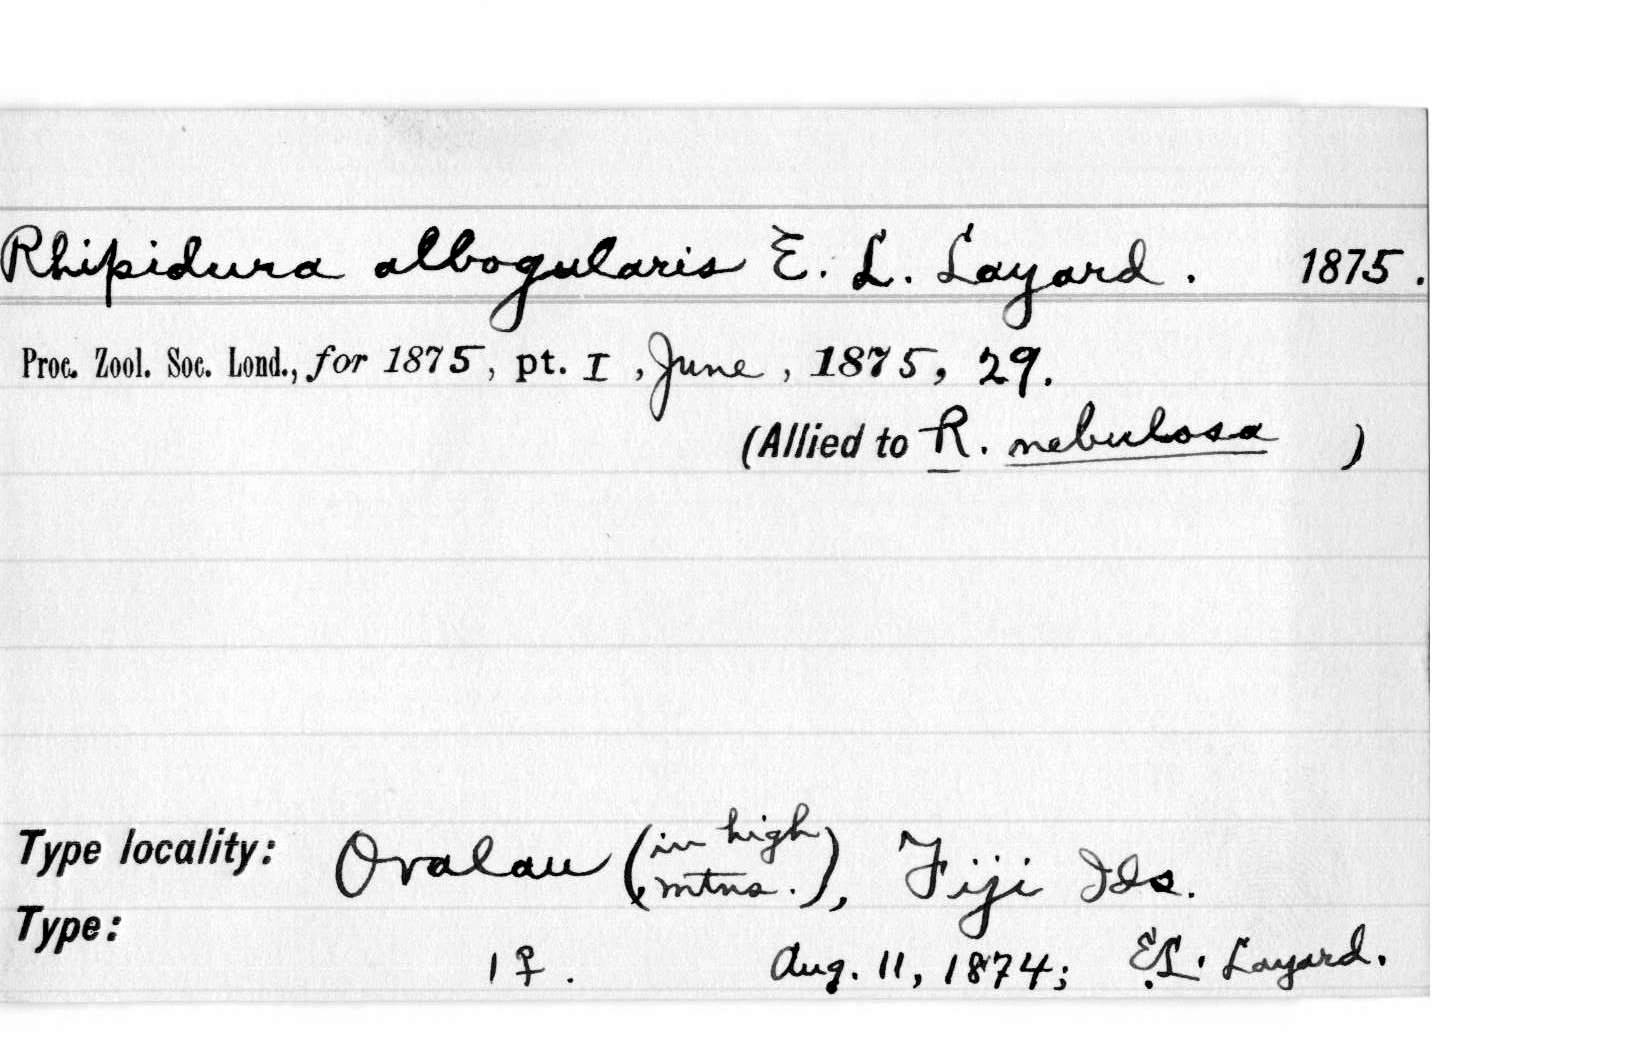 Rhipidura albogularis E. L. Layard. 1875.
Proc. Zool. Soc. Lond., for 1875, pt. I, June, 1875, 29.
(Allied to R. nebulosa )
Type locality: Ovalau (in high mtns.), Fiji Ids.
Type:
1 ♀. Aug. 11, 1874; E.L. Layard.